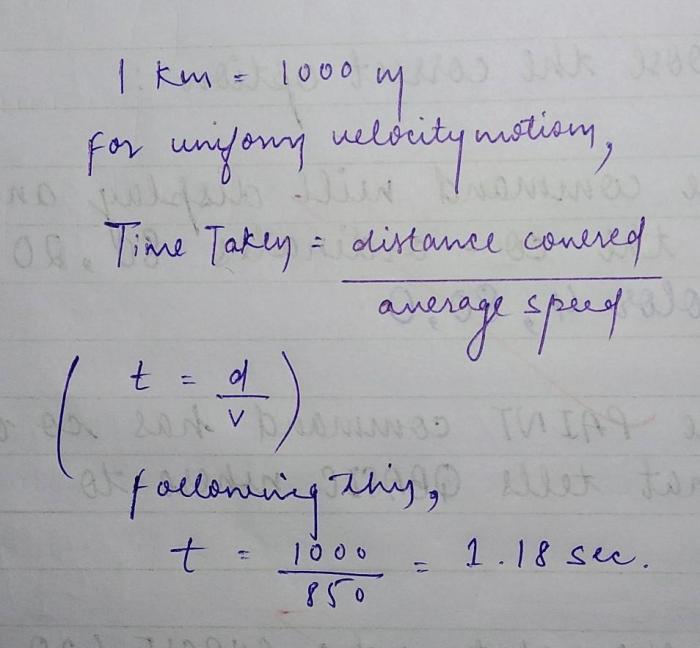 1 Km = 1000 m
For uniform velocity motion,
Time Taken = distance covered
average speed
( t = d
v )
following this,
t = 1000
850 = 1.18 sec.